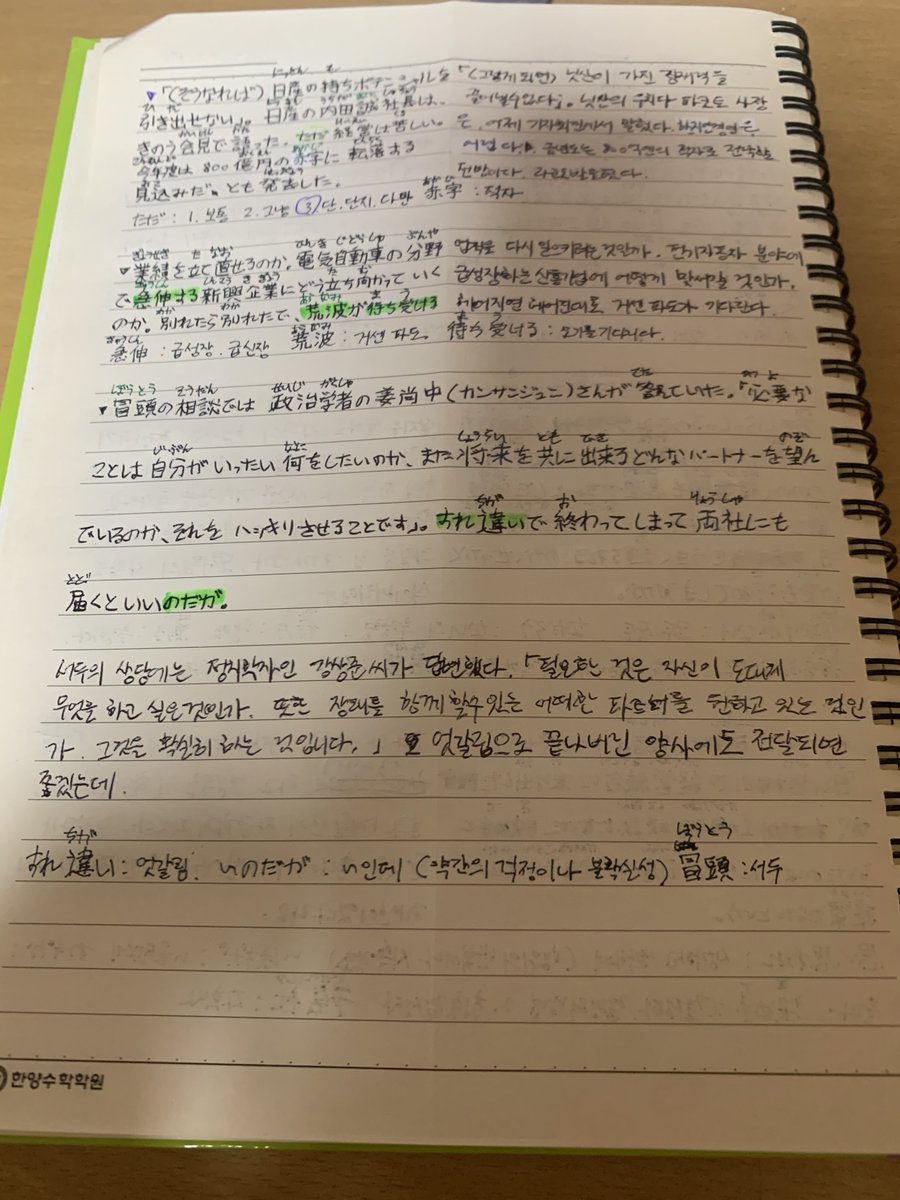 ▼「(そうなれば) 日産の持ちポテンシャルを 「(그렇게 되면) 닛산이 가진 잠재력을
引き出せない」。日産の内田誠社長は、
きのう会見で語った。ただ 経営は苦しい。 은, 어제 기자회견에서 말했다.
今年度は 800億円の赤字に 転落する
見込みだ。とも 発言した。
ただ : 1. 보통 2. 그냥 ③ 단, 단지, 다만 赤字 : 적자
▼業績を立て直せるのか。電気自動車の分野 업적을 다시 일으키려는 것인가. 전기자동차 분야에
で急伸する新興企業にどう立ち向かっていく 급성장하는 신흥기업에 어떻게 맞서갈 것인가.
のか。別れたら別れたで、荒波が待ち受ける 헤어지면 헤어진대로, 거센 파도가 기다린다.
急伸 : 급성장. 급신장 荒波 : 거센 파도. 待ち受ける : 오기를 기다리다.
▼冒頭の相談では 政治学者の姜尚中(カンサンジュン)さんが 答えていた。「必要な
ことは 自分がいったい 何をしたいのか、また将来を共に出来るどんなパートナーを望ん
でいるのか、それを ハッキリさせることです」。すれ違いで 終わってしまって 両社にも
届くといいのだが。
서두의 상담에는 정치학자인 강상준씨가 답변했다. 「필요한 것은 자신이 도대체
무엇을 하고 싶은것인가. 또한 장래를 함께 할수있는 어떠한 파트너를 원하고 있는 것인
가. 그것을 확실히 하는 것입니다.」 엇갈림으로 끝나버린 양사에도 전달되면
좋겠는데.
すれ違い : 엇갈림. いのだが : ~인데 (약간의 걱정이나 불확실성) 冒頭 : 서두
한양수학학원